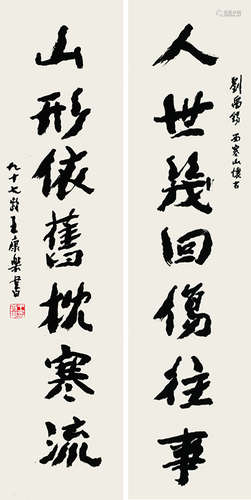 劉禹錫 西塞山懷古
人世幾回傷往事
山形依舊枕寒流
九十七齡王康樂書